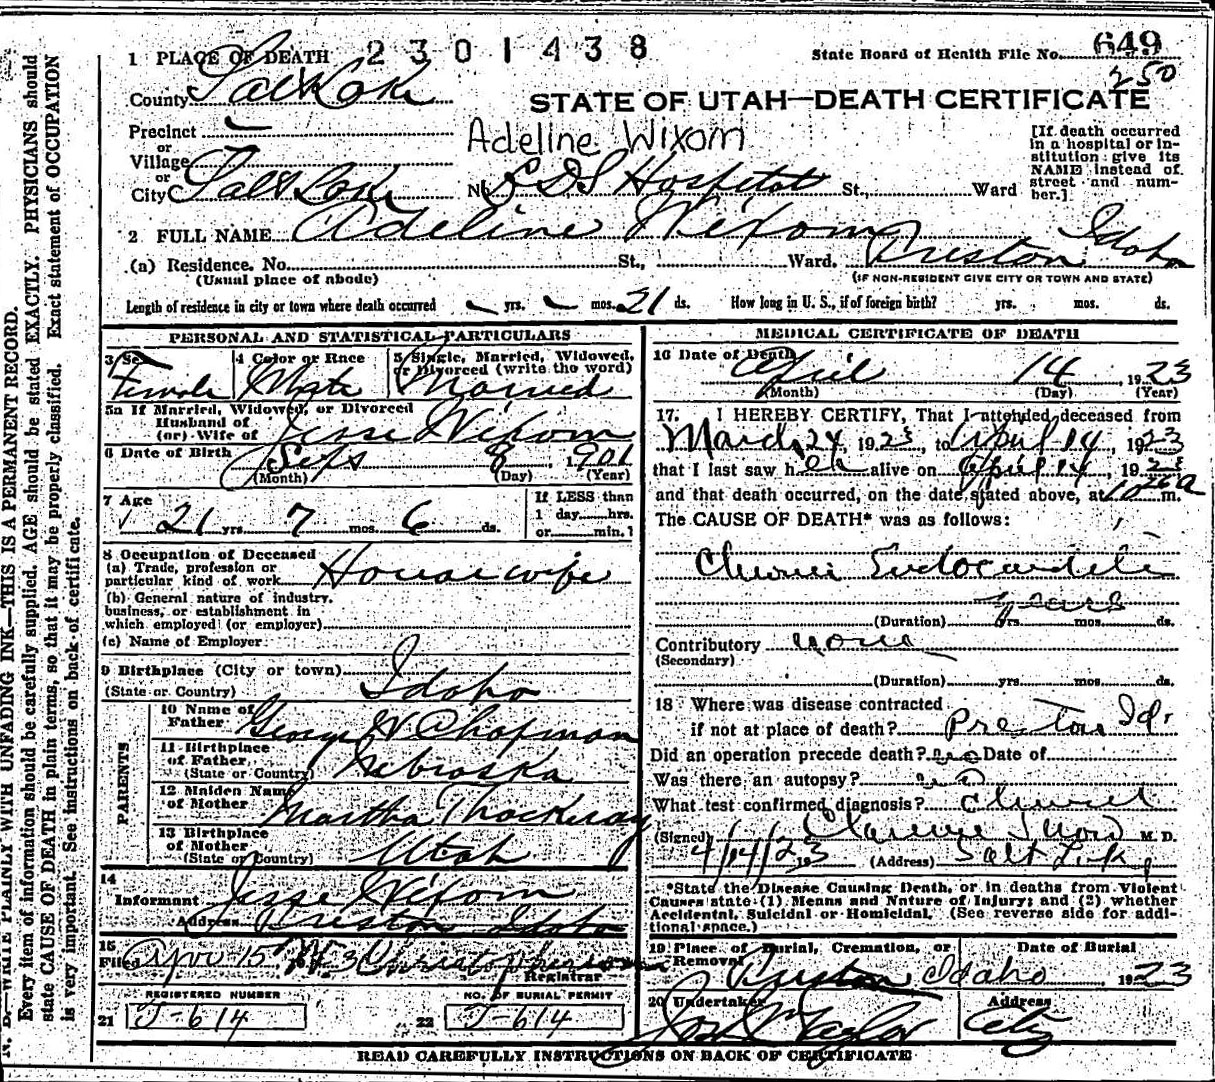 1 PLACE OF DEATH 2301438
State Board of Health File No. 649
250
County Salt Lake
STATE OF UTAH—DEATH CERTIFICATE
Precinct
or
Village
or
City Salt Lake
Adeline Wixom
No. LDS Hospital St., Ward
[If death occurred
in a hospital or in-
stitution give its
NAME instead of
street and num-
ber.]
2 FULL NAME Adeline Wixom
(a) Residence. No. St., Ward. Preston Idaho
(Usual place of abode)
(IF NON-RESIDENT GIVE CITY OR TOWN AND STATE)
Length of residence in city or town where death occurred yrs. mos. 21 ds. How long in U. S., if of foreign birth? yrs. mos. ds.
PERSONAL AND STATISTICAL PARTICULARS
3 Sex
Female
4 Color or Race
White
5 Single, Married, Widowed,
or Divorced (write the word)
Married
5a If Married, Widowed, or Divorced
Husband of
(or) Wife of Jesse Wixom
6 Date of Birth Sept 8, 1901
(Month) (Day) (Year)
7 Age
21 yrs. 7 mos. 6 ds.
If LESS than
1 day hrs.
or min.
8 Occupation of Deceased
(a) Trade, profession or
particular kind of work Housewife
(b) General nature of industry,
business, or establishment in
which employed (or employer)
(c) Name of Employer
9 Birthplace (City or town)
(State or Country) Idaho
PARENTS
10 Name of
Father George W Chapman
11 Birthplace
of Father
(State or Country) Nebraska
12 Maiden Name
of Mother Martha Thackeray
13 Birthplace
of Mother
(State or Country) Utah
14
Informant Jesse Wixom
Address Preston Idaho
15
Filed Apr 15 1923 Registrar
REGISTERED NUMBER
21 J-614
NO. OF BURIAL PERMIT
22 J-614
MEDICAL CERTIFICATE OF DEATH
16 Date of Death
April 14, 1923
(Month) (Day) (Year)
17. I HEREBY CERTIFY, That I attended deceased from
March 24, 1923, to April 14, 1923
that I last saw her alive on April 14, 1923
and that death occurred, on the date stated above, at m.
The CAUSE OF DEATH* was as follows:
Chronic Endocarditis
years
(Duration) yrs. mos. ds.
Contributory none
(Secondary)
(Duration) yrs. mos. ds.
18 Where was disease contracted
if not at place of death? Preston Id.
Did an operation precede death? no Date of
Was there an autopsy? no
What test confirmed diagnosis? Clinical
(Signed) Clarence Snow M. D.
4/14/23 (Address) Salt Lake
*State the Disease Causing Death, or in deaths from Violent
Causes state (1) Means and Nature of Injury; and (2) whether
Accidental, Suicidal or Homicidal. (See reverse side for addi-
tional space.)
19 Place of Burial, Cremation, or
Removal
Preston Idaho
Date of Burial
1923
20 Undertaker
Taylor
Address
City
READ CAREFULLY INSTRUCTIONS ON BACK OF CERTIFICATE
N. B.—WRITE PLAINLY WITH UNFADING INK—THIS IS A PERMANENT RECORD.
Every item of information should be carefully supplied. AGE should be stated EXACTLY. PHYSICIANS should
state CAUSE OF DEATH in plain terms, so that it may be properly classified. Exact statement of OCCUPATION
is very important. See instructions on back of certificate.